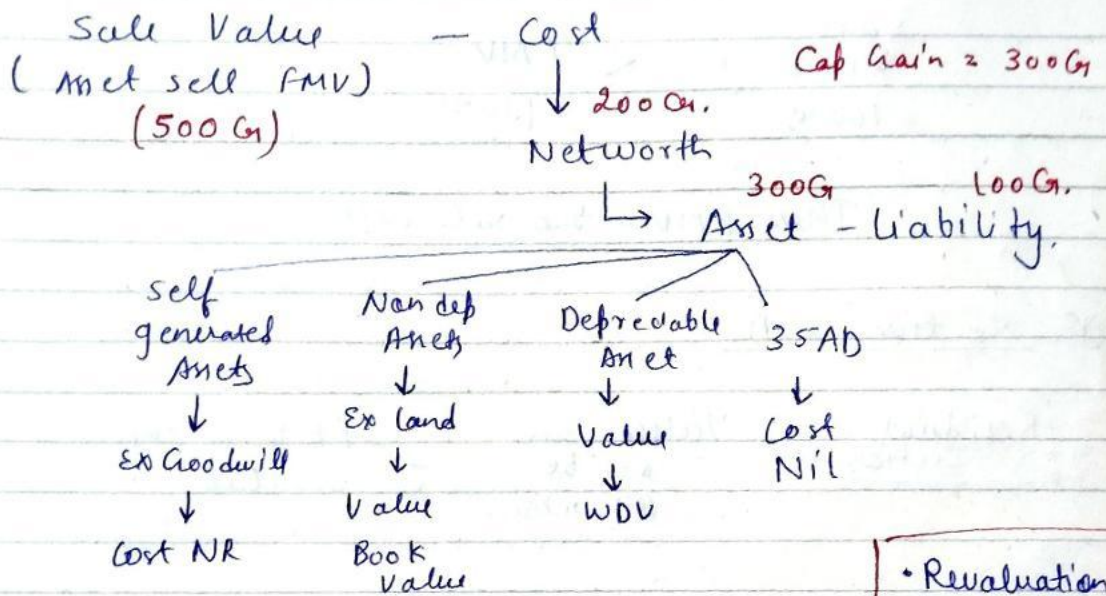 Sale Value – Cost
(Asset sell FMV)
Cap Gain = 300Cr
(500 Cr)
↓ 200 Cr.
Networth
300Cr 100Cr.
↳ Asset – Liability.
Self generated Assets
↓
Ex Goodwill
↓
Cost NR
Non dep Assets
↓
Ex land
↓
Value
Book Value
Depreciable Asset
↓
Value
↓
WDV
35AD
↓
Cost
Nil
• Revaluation